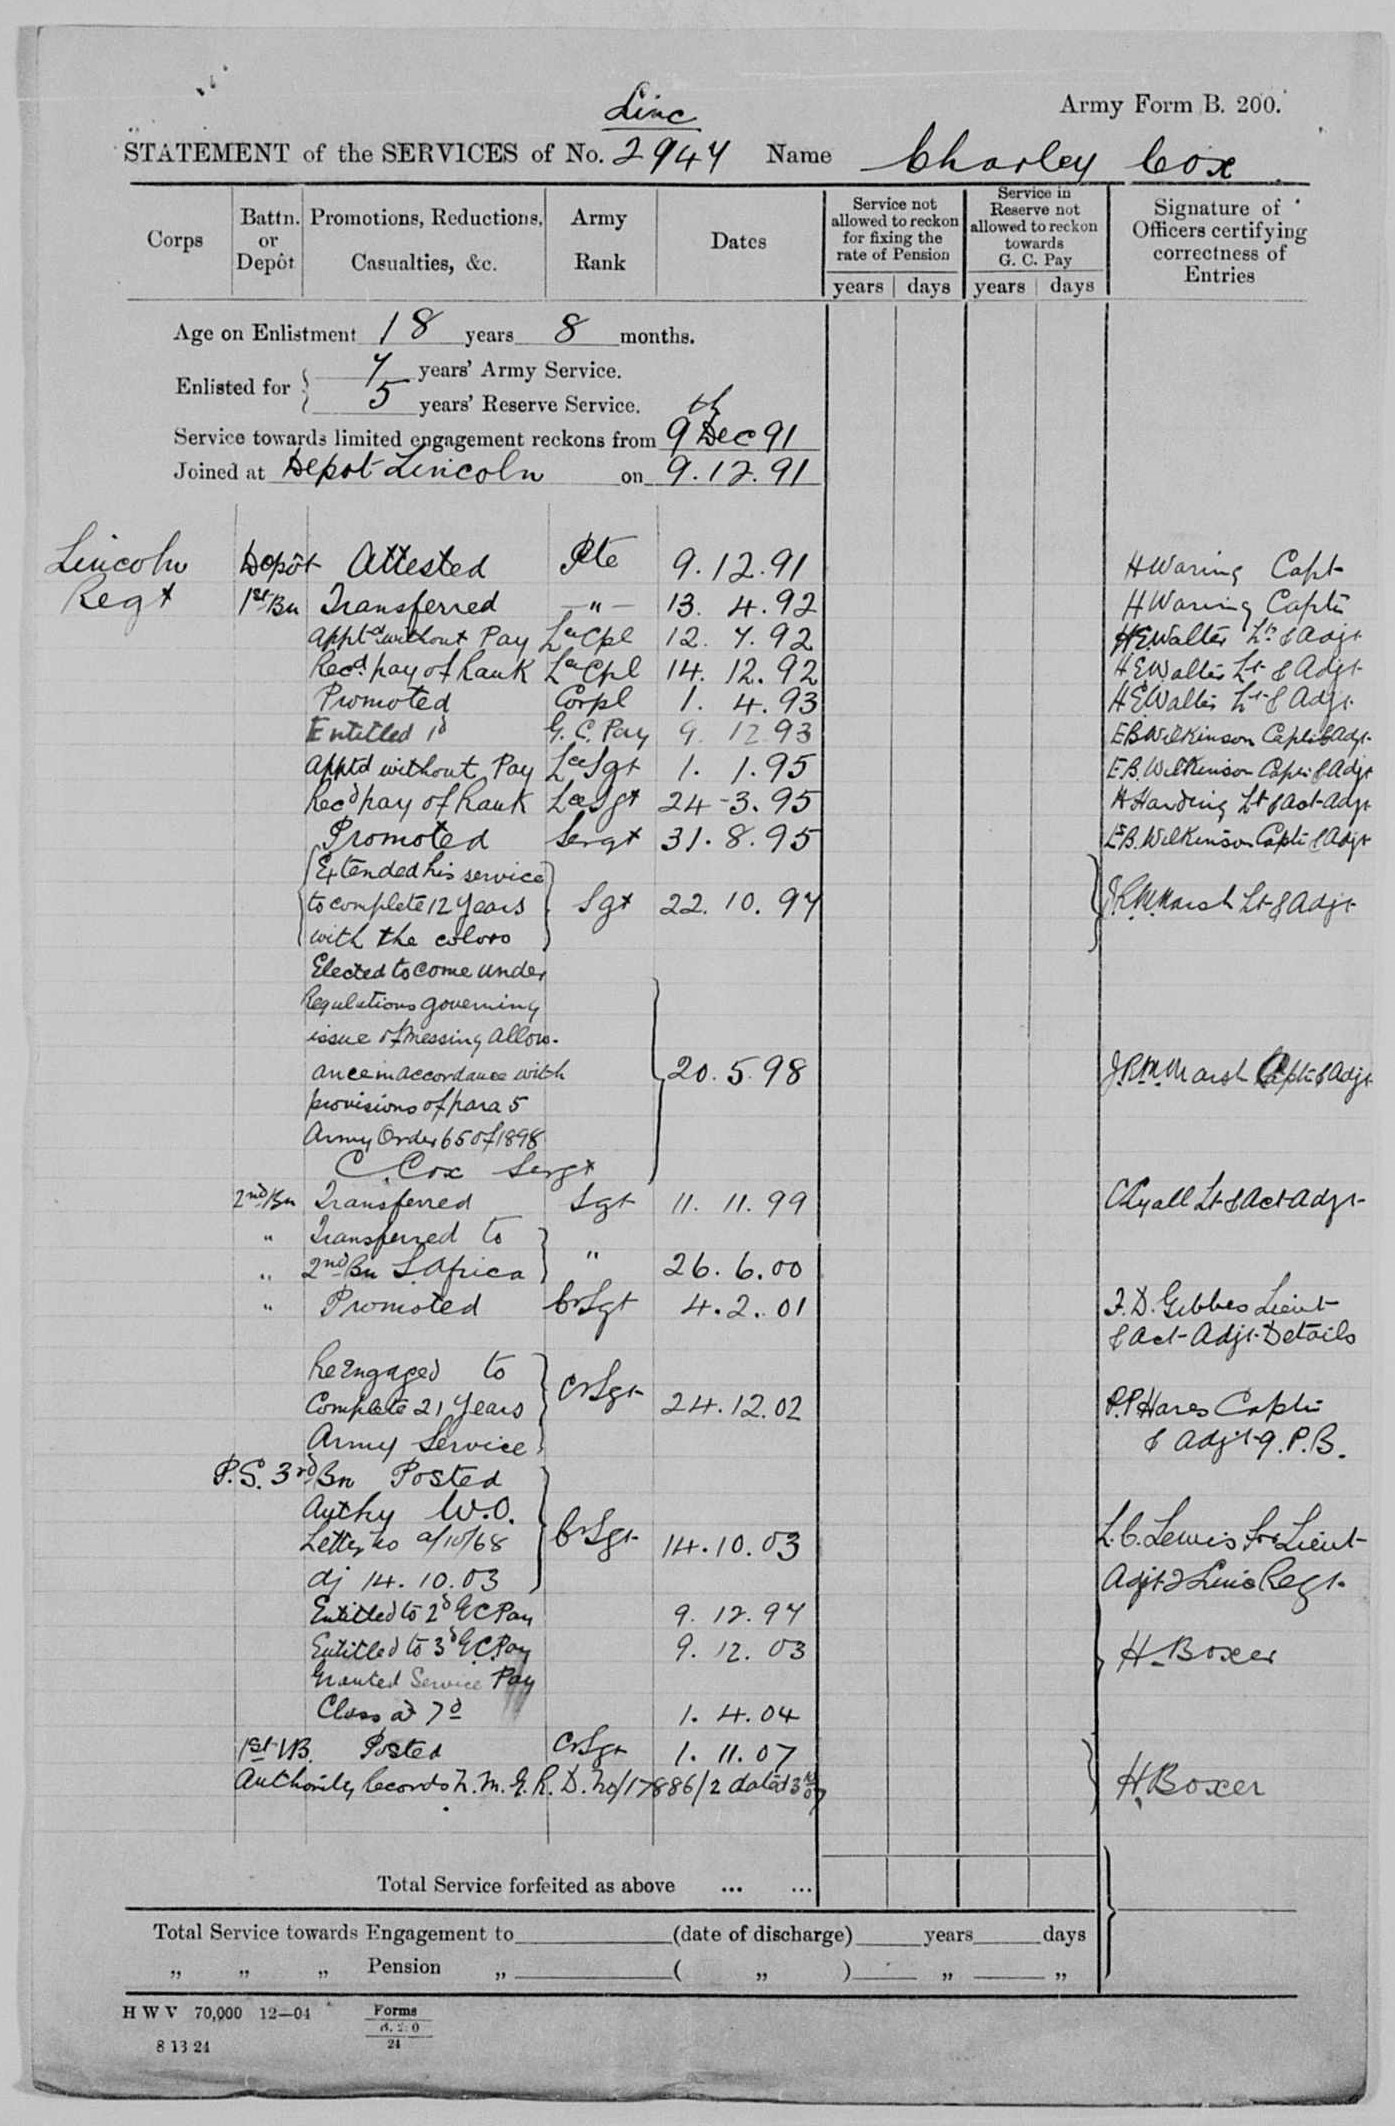 Army Form B. 200.
Linc
STATEMENT of the SERVICES of No. 2947 Name Charley Cox
Corps Battn. or Depôt Promotions, Reductions, Casualties, &c. Army Rank Dates Service not allowed to reckon for fixing the rate of Pension years days Service in Reserve not allowed to reckon towards G. C. Pay years days Signature of Officers certifying correctness of Entries
Age on Enlistment 18 years 8 months.
Enlisted for 7 years' Army Service.
5 years' Reserve Service.
Service towards limited engagement reckons from 9th Dec 91
Joined at Depot Lincoln on 9.12.91
Lincoln Depôt Attested Pte 9.12.91 H Waring Capt
Regt 1st Bn Transferred —"— 13. 4.92 H Waring Captn
Apptd without Pay Lce Cpl 12. 7.92 H E Walter Lt & Adjt
Recd pay of Rank Lce Cpl 14. 12.92 H E Walter Lt & Adjt
Promoted Corpl 1. 4.93 H E Walter Lt & Adjt
Entitled 1d G. C. Pay 9. 12 93 E B Wilkinson Capt & Adjt
Apptd without Pay Lce Sgt 1. 1.95 E.B. Wilkinson Capt & Adjt
Recd pay of Rank Lce Sgt 24-3.95 H Harding Lt & Act-Adjt
Promoted Sergt 31.8.95 E B. Wilkinson Capt & Adjt
Extended his service
to complete 12 years Sgt 22. 10. 97 J.R.M. Marsh Lt & Adjt
with the colors
Elected to come under
Regulations governing
issue of Messing Allow-
ance in accordance with 20. 5. 98 J.R.M. Marsh Capt & Adjt
provisions of para 5
Army Order 65 of 1898
C. Cox Sergt
2nd Bn Transferred Sgt 11. 11. 99 C Lyall Lt & Act Adjt
" Transferred to
" 2nd Bn S. Africa " 26. 6. 00
" Promoted Cr Sgt 4. 2. 01 F. D. Gibbes Lieut
& Act-Adjt-Details
Re Engaged to
Complete 21 Years Cr Sgt 24.12.02 P. P Hares Captn
Army Service & Adjt 9. P. B.
P.S. 3rd Bn Posted
Authy W.O.
Letter No a/10/68 Cr Sgt 14.10.03 L. C. Lewis for Lieut
dj 14. 10. 03 Adjt 2 Linc Regt.
Entitled to 2d G C Pay 9. 12. 97
Entitled to 3d G.C. Pay 9. 12. 03 H. Boxer
Granted Service Pay
Class at 7d 1. 4. 04
1st V.B. Posted Cr Sgt 1. 11. 07
Authority Records N. M. G. R. D. No/17886/2 dated H. Boxer
Total Service forfeited as above ... ...
Total Service towards Engagement to (date of discharge) years days
„ „ „ Pension „ ( „ ) „ „
H W V 70,000 12—04 Forms
24
8 13 24